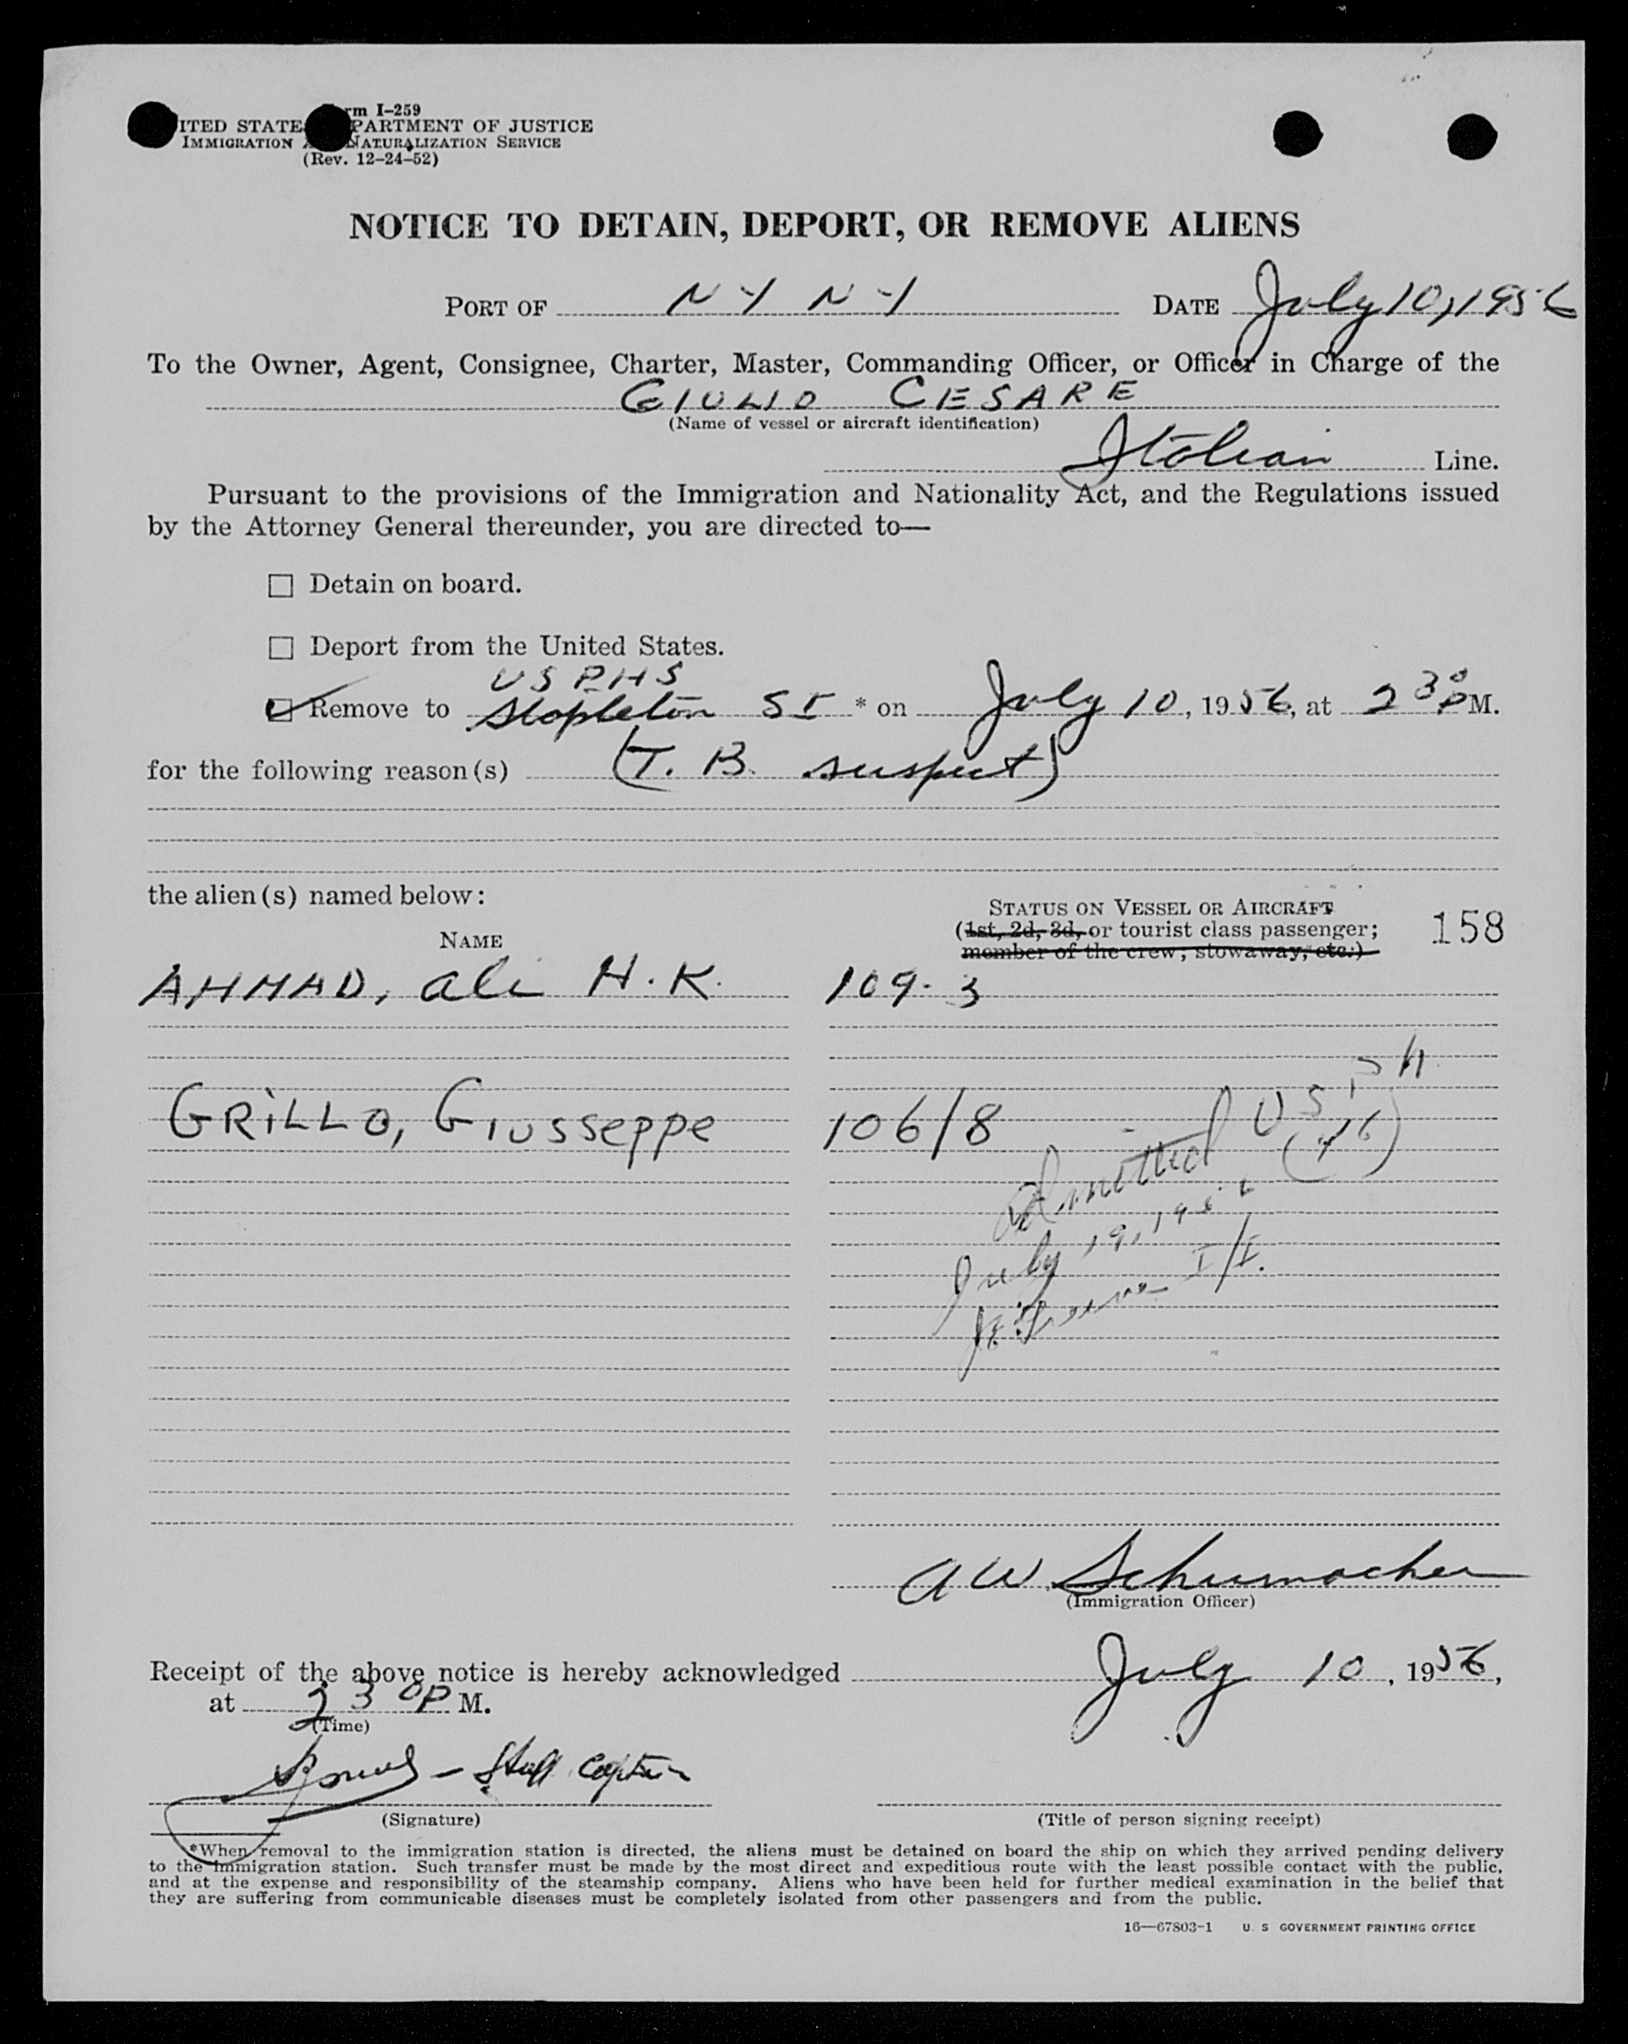 rm I-259
ITED STATE PARTMENT OF JUSTICE
IMMIGRATION NATURALIZATION SERVICE
(Rev. 12-24-52)
NOTICE TO DETAIN, DEPORT, OR REMOVE ALIENS
PORT OF NY NY DATE July 10, 1956
To the Owner, Agent, Consignee, Charter, Master, Commanding Officer, or Officer in Charge of the
GIULIO CESARE
(Name of vessel or aircraft identification)
Italian Line.
Pursuant to the provisions of the Immigration and Nationality Act, and the Regulations issued
by the Attorney General thereunder, you are directed to—
Detain on board.
Deport from the United States.
USPHS
Remove to Stapleton SI * on July 10, 1956, at 2 30 P M.
for the following reason(s) (T. B. suspect)
the alien(s) named below:
STATUS ON VESSEL OR AIRCRAFT
(1st, 2d, 3d, or tourist class passenger; 158
member of the crew, stowaway, etc.)
NAME
AHMAD, Ali H.K. 109-3
GRILLO, Giusseppe 106/8
Admitted USPH
July 19, 1956
I/I.
A W Schumacher
(Immigration Officer)
Receipt of the above notice is hereby acknowledged July 10, 1956,
at 2 30 P M.
(Time)
– Staff Captain
(Signature) (Title of person signing receipt)
*When removal to the immigration station is directed, the aliens must be detained on board the ship on which they arrived pending delivery
to the immigration station. Such transfer must be made by the most direct and expeditious route with the least possible contact with the public,
and at the expense and responsibility of the steamship company. Aliens who have been held for further medical examination in the belief that
they are suffering from communicable diseases must be completely isolated from other passengers and from the public.
16—67803-1 U. S GOVERNMENT PRINTING OFFICE